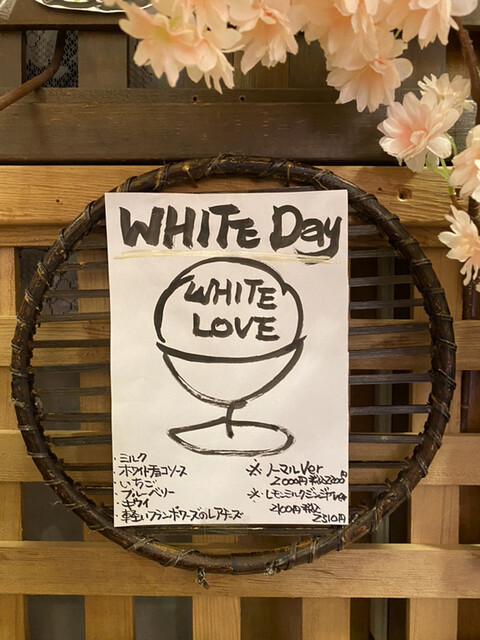 WHITE Day
WHITE
LOVE
・ミルク
・ホワイトチョコソース
・いちご
・ブルーベリー
・キウイ
・軽いフランボワーズのレアチーズ
※ノーマルVer
2000円 税込2200円
※レモンミルクジンジャVer
2100円 税込
2310円